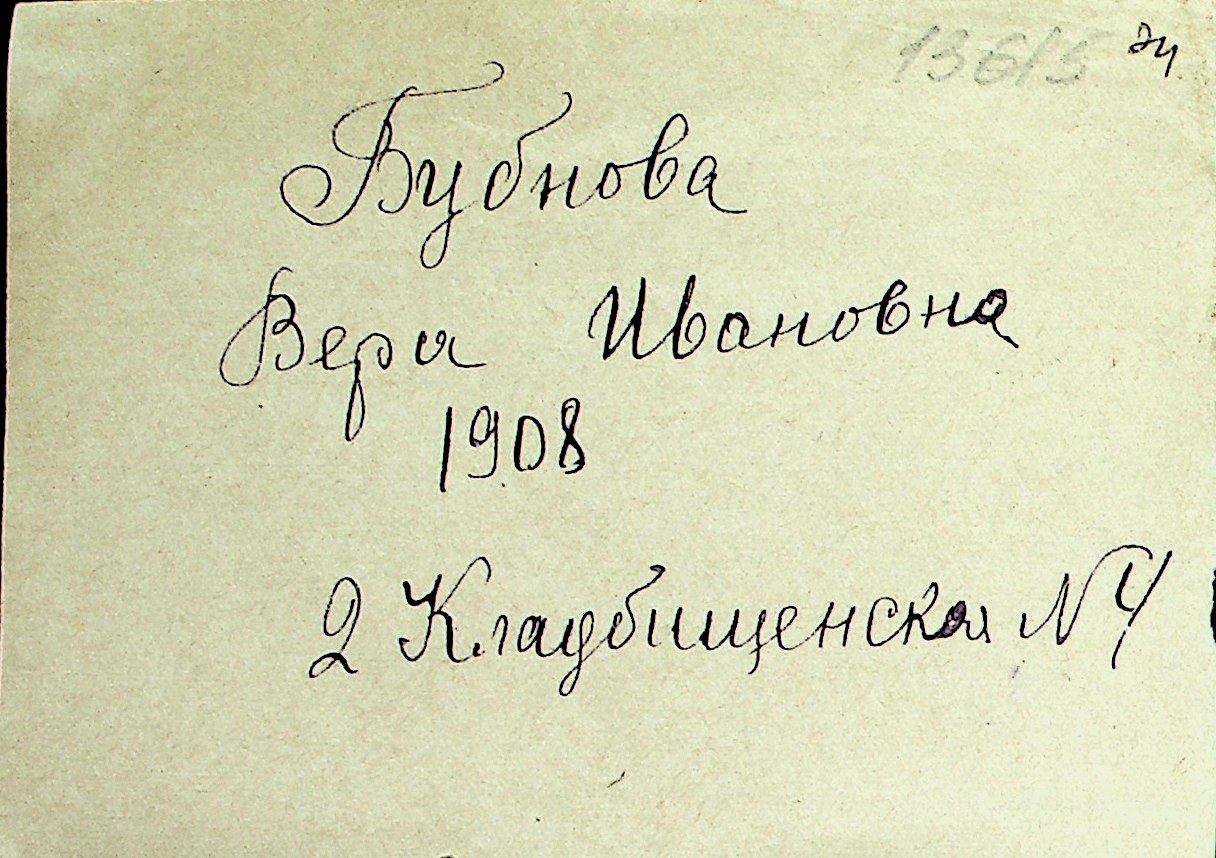 13615 74
Бубнова
Вера Ивановна
1908
2 Кладбищенская N 4